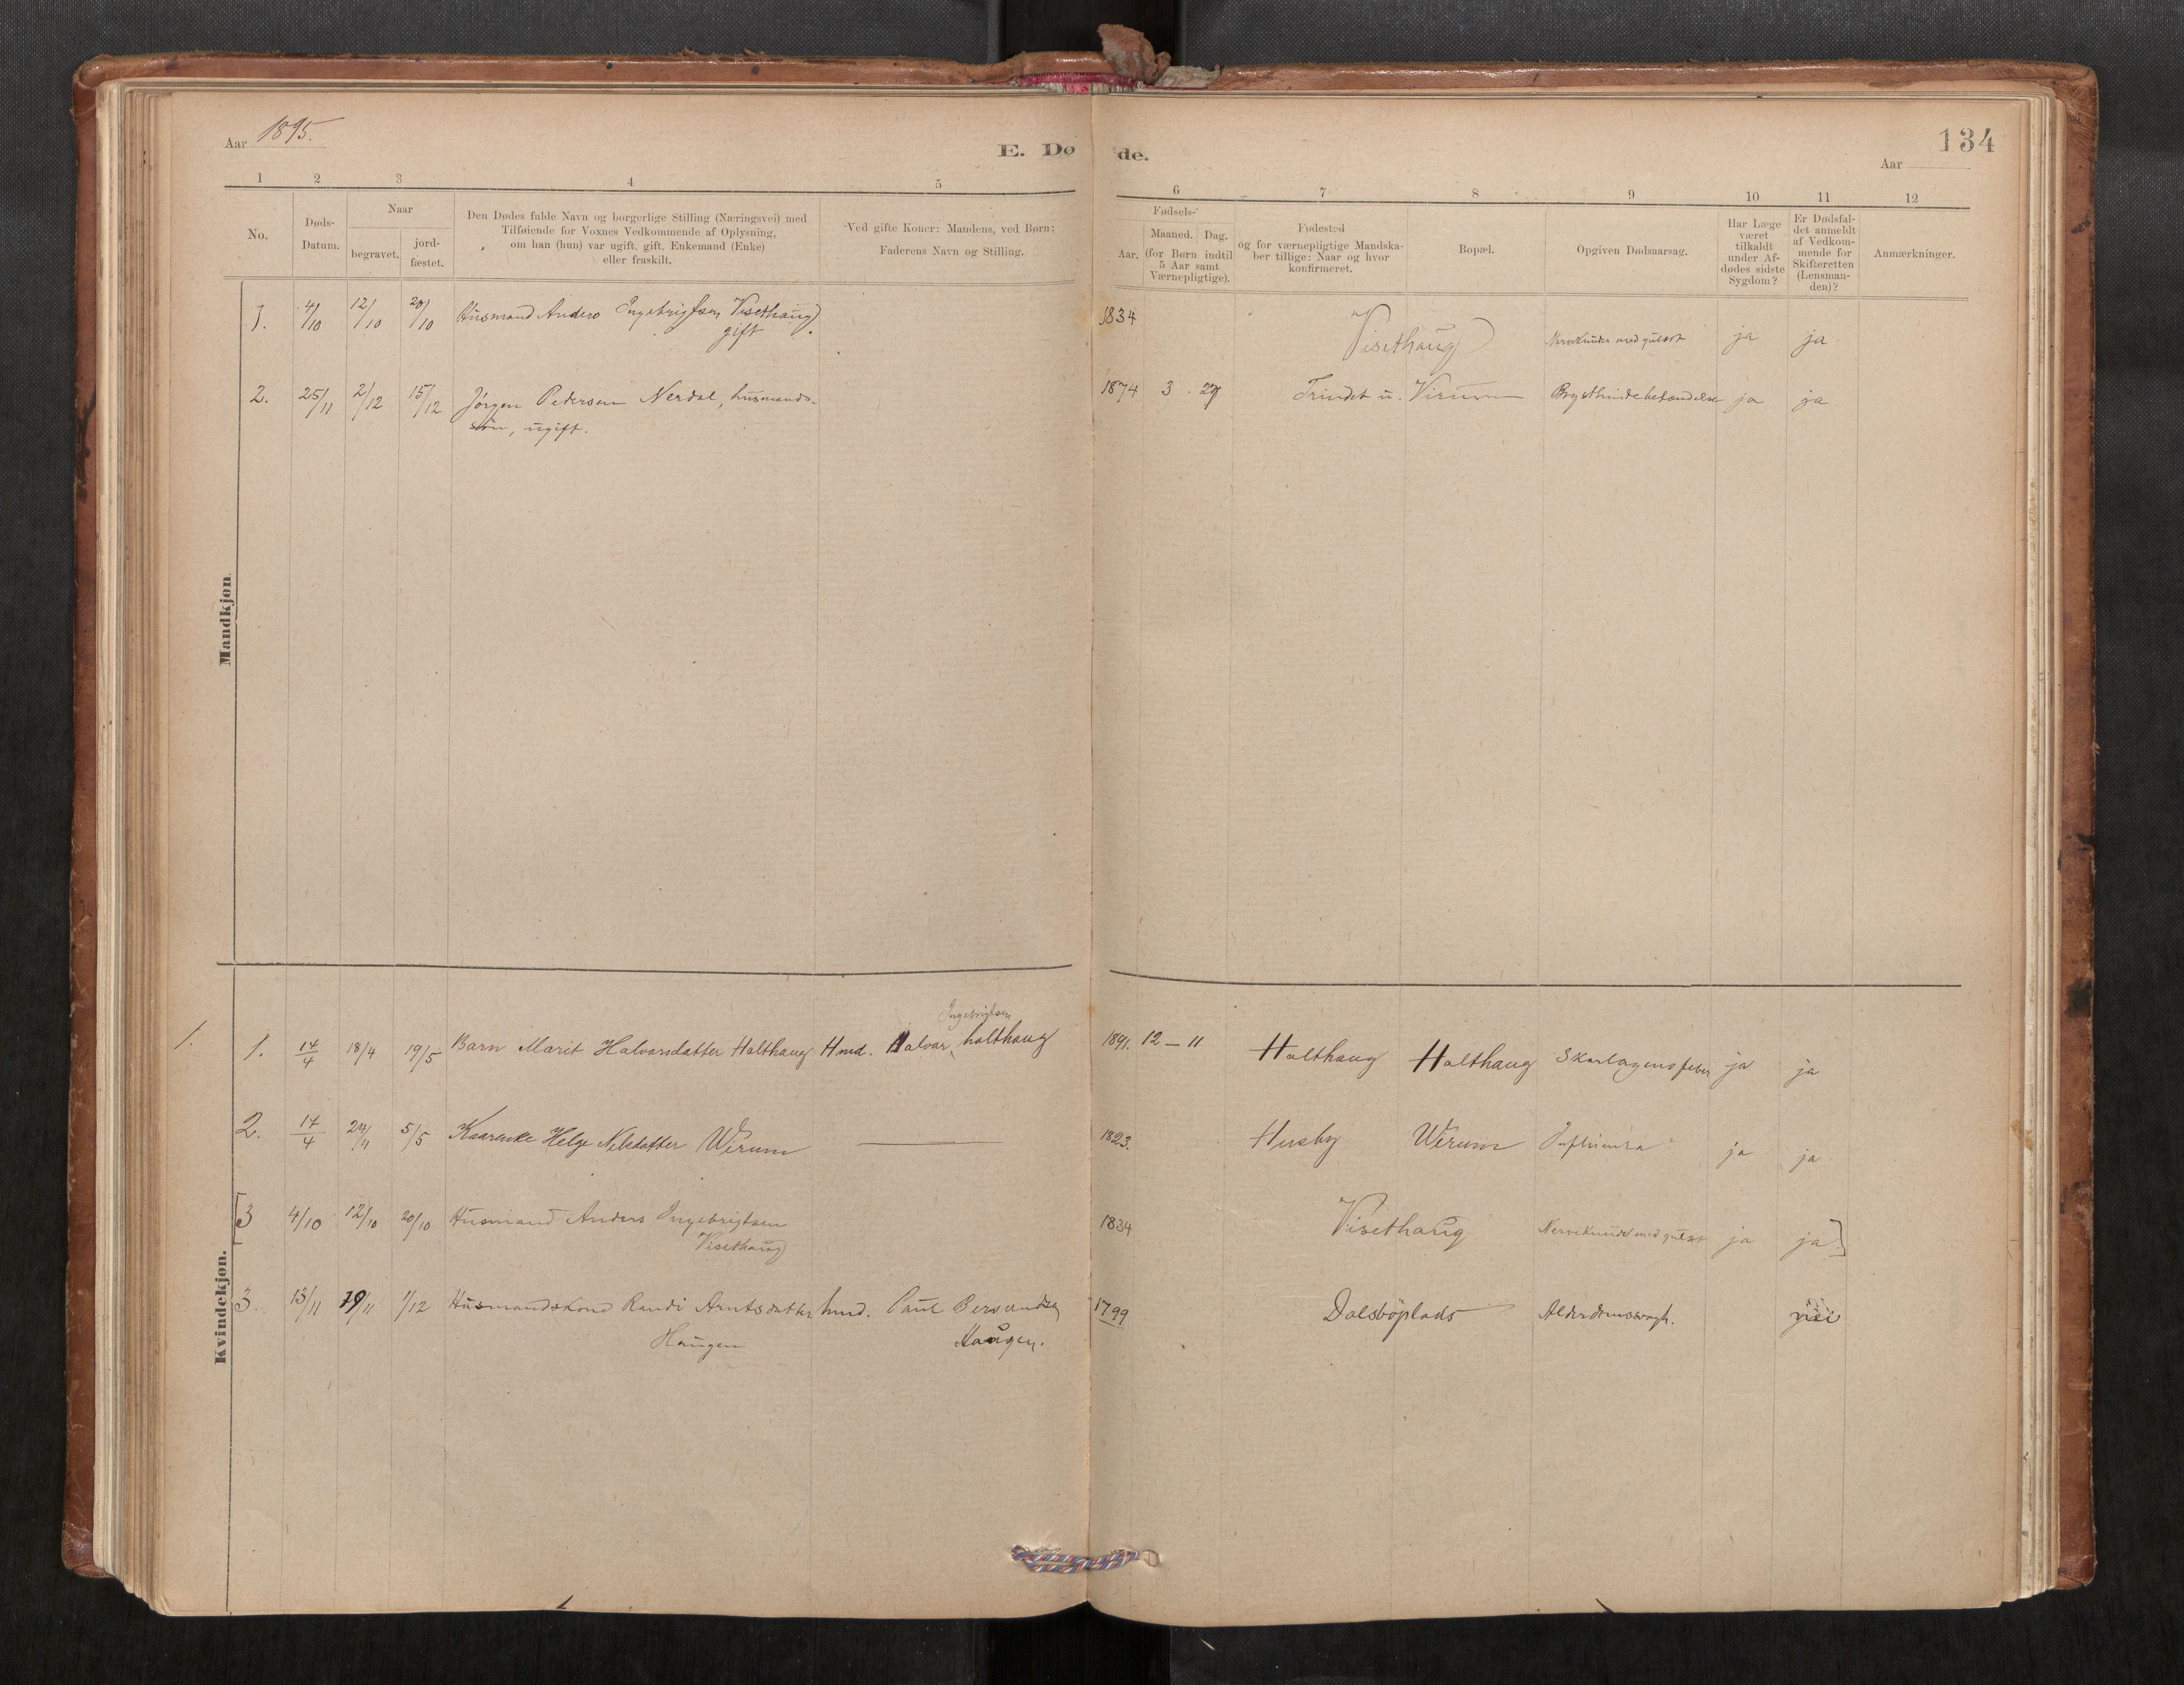 Aar 1895.
E. Døde.
134
Aar
1 2 3 4 5 6 7 8 9 10 11 12
No.
Døds-
Datum.
Naar
begravet.
jord-
fæstet.
Den Dødes fulde Navn og borgerlige Stilling (Næringsvei) med
Tilføiende for Voxnes Vedkommende af Oplysning,
om han (hun) var ugift, gift, Enkemand (Enke)
eller fraskilt.
Ved gifte Koner: Mandens, ved Børn:
Faderens Navn og Stilling.
Fødsels-
Aar.
Maaned. Dag.
(for Børn indtil
5 Aar samt
Værnepligtige).
Fødested
og for værnepligtige Mandska-
ber tillige: Naar og hvor
konfirmeret.
Bopæl.
Opgiven Dødsaarsag.
Har Læge
været
tilkaldt
under Af-
dødes sidste
Sygdom?
Er Dødsfal-
det anmeldt
af Vedkom-
mende for
Skifteretten
(Lensman-
den)?
Anmærkninger.
Mandkjøn
1. 4/10 12/10 20/10 Husmand Anders Ingebrigtsen Visethaug 1834
gift. Visethaug med gulsot ja ja.
2. 25/11 2/12 15/12 Jörgen Pedersen Nerdal, husmands- 1874 3 29 Trindet u. Virum Brysthindebetændelse ja ja
sön, ugift.
Kvindekjøn.
Ingebrigtsen
1. 1. 14/4 18/4 19/5 Barn Marit Halvarsdatter Holthaug Hmd. Halvar holthaug 1891. 12 – 11 Holthaug Holthaug Skarlagensfeber ja ja
2. 17/4 24/4 5/5 Kaarenke Helge Nilsdatter Wirum — 1823. Husby Wirum Influensa ja ja
[3 4/10 12/10 20/10 Husmand Anders Ingebrigtsen 1834 Visethaug med gulsot ja ja.]
Visethaug
3. 13/11 19/11 1/12 Husmandskone Randi Arntsdatter hmd. Paul Bersvendsen 1799 Dalsböplads Alderdomssvagh.
Haugen Haugen.